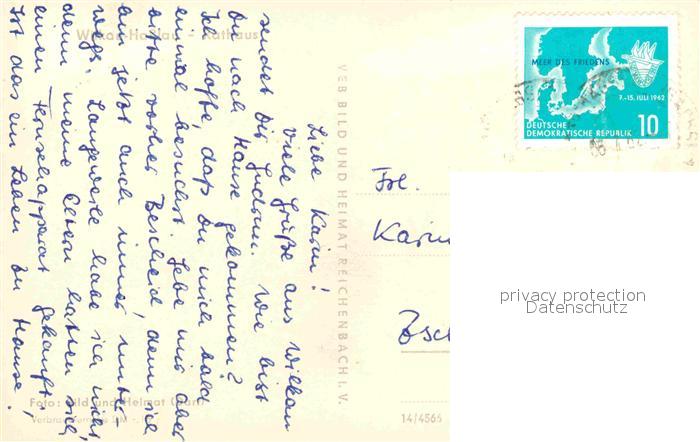 Wilkau-Haßlau - Rathaus
Liebe Karin!
Viele Grüße aus Wilkau
sendet Dir Gudrun. Wie bist
Du nach Hause gekommen?
Ich hoffe, daß Du mich bald
einmal besuchst. Gebe mir aber
bitte vorher Bescheid, denn ich
bin jetzt auch immer unter-
wegs. Langeweile habe ich nicht,
denn meine Eltern hatten sich
einen Fernsehapparat gekauft;
Ist das ein Leben zu Hause!
Foto: Bild und Heimat
VEB BILD UND HEIMAT REICHENBACH I. V.
14/4566
MEER DES FRIEDENS
7.-15. JULI 1962
DEUTSCHE
DEMOKRATISCHE REPUBLIK 10
Frl.
Karin
Zsch
privacy protection
Datenschutz